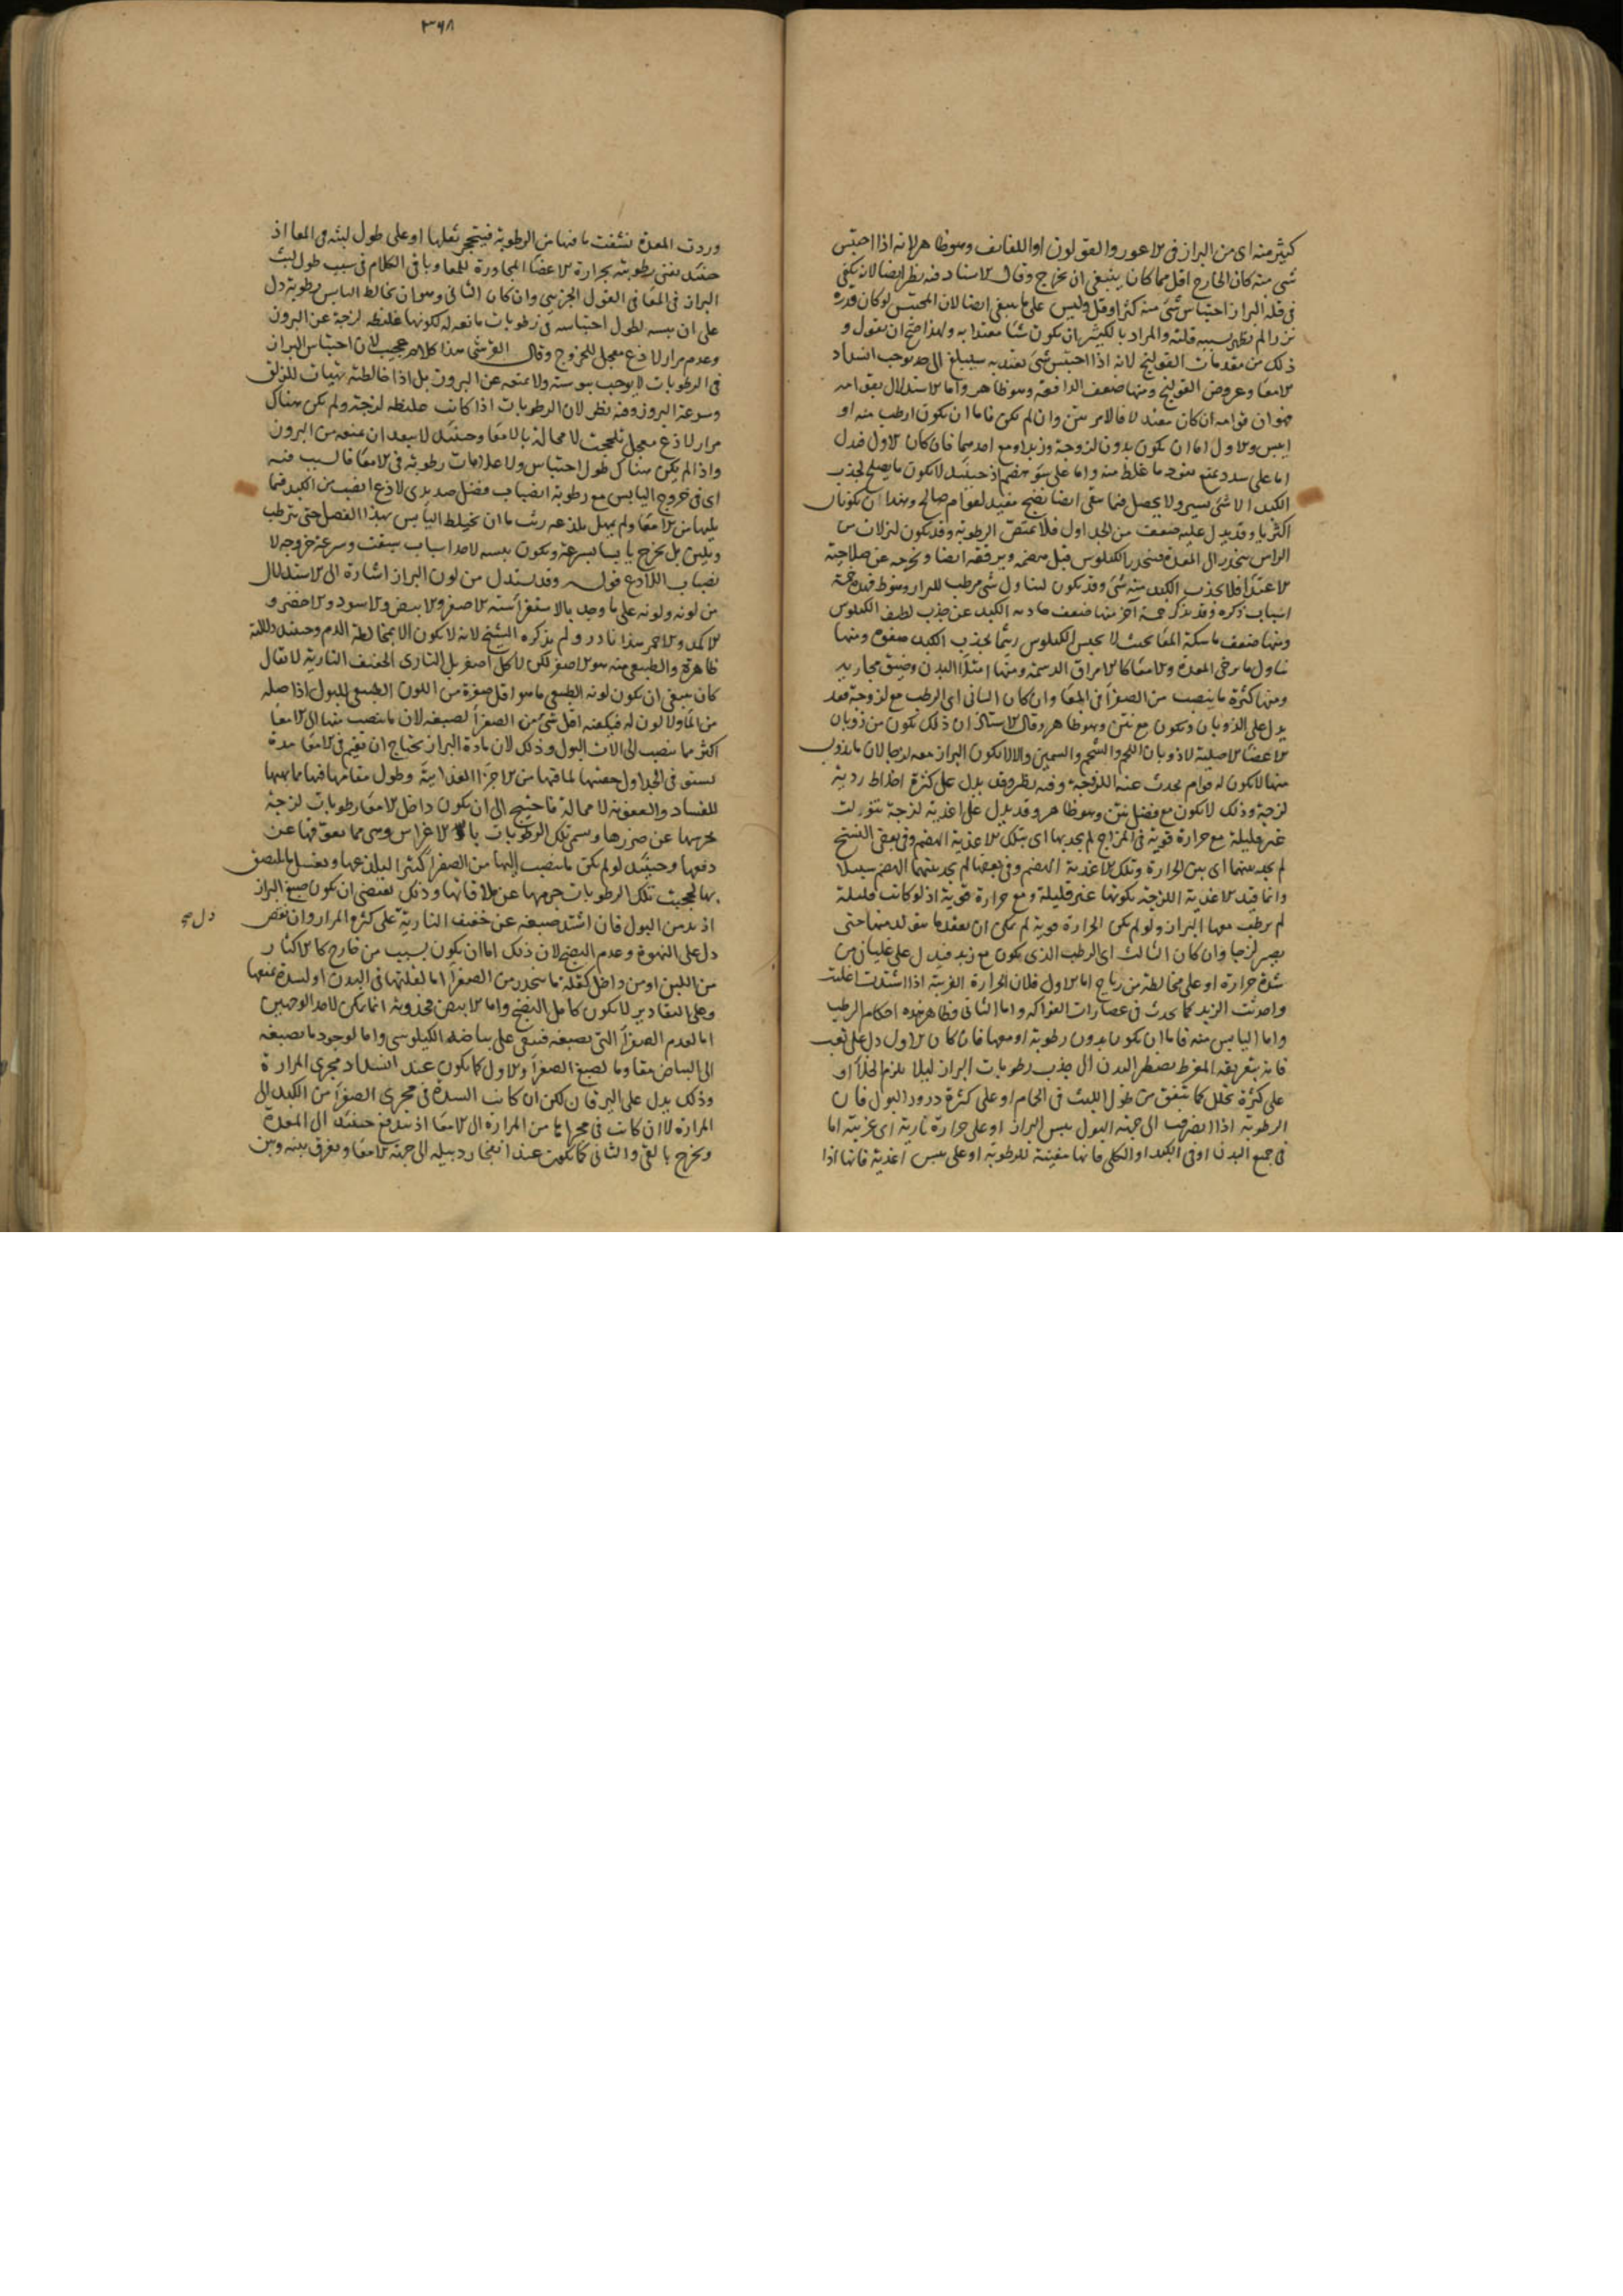 ٣٦٨
كثير منه اى من البراز فى الاعور والقولون او اللفائف وهو ظاهر لانه اذا احتبس
شى منه كان الخارج اقل مما كان ينبغى ان يخرج وقال الاستاد فيه نظر ايضا لانه يكفى
فى قلة البراز احتباس شى منه كثر او قل وليس على ما ينبغى ايضا لان المحتبس لو كان قدره
نزرا لم يظهر بسببه قلته والمراد بالكثير ان يكون شيئا معتدا به ولهذا صح ان يقول و
ذلك من مقدمات القولنج لانه اذا احتبس شى يعتد به سيبلغ الى حد يوجب انسداد
الامعا وعروض القولنج ومنها ضعف الدافعة وهو ظاهر واما الاستدلال بقوامه
فهو ان قوامه ان كان معتدلا فالامر بين وان لم يكن فاما ان يكون ارطب منه او
ايبس والاول اما ان يكون بدون لزوجة وزبد او مع احدهما فان كان الاول فدل
اما على سدد يمنع نفوذ ما غلظ منه واما على سو هضم اذ حينئذ لا يكون ما يصلح لجذب
الكبد الا شى يسير ولا يحصل فيما بقى ايضا نضج مفيد لقوام صالح وهذا ان يكونان
اكثريا وقد يدل عليه ضعف من الجداول فلا تمتص الرطوبة وقد يكون لنزلات من
الراس ينحدر الى المعدة فينحدر الكيلوس قبل هضمه ويرققه ايضا ويخرجه عن صلاحية
الاغتذا فلا يجذب الكبد منه شى وقد يكون لتناول شى مرطب للبراز وهو ظاهر فهذه خمسة
اسباب ذكره وقد يذكر خمسة اخر منها ضعف جاذبة الكبد عن جذب لطيف الكيلوس
ومنها ضعف ماسكة المعا بحيث لا يحبس الكيلوس ريثما يجذب الكبد صفوه ومنها
تناول ما يرخى المعدة والامعا كالامراق الدسمة ومنها امتلا البدن وضيق مجاريه
ومنها كثرة ما ينصب من الصفرا فى المعا وان كان الثانى اى الرطب مع لزوجة فقد
يدل على الذوبان ويكون مع نتن وهو ظاهر وقال الاستاذ ان ذلك يكون من ذوبان
الاعضا الاصلية لا ذوبان اللحم والشحم والسمين والا لا يكون البراز معه لزجا لان ما يذوب
منها لا يكون له قوام يحدث عنه اللزوجة وفيه نظر وقد يدل على كثرة اخلاط ردية
لزجة وذلك لا يكون مع فضل نتن وهو ظاهر وقد يدل على اغذية لزجة تنوولت
غير قليلة مع حرارة قوية فى المزاج لم يجد بها اى بتلك الاغذية الهضم وفى بعض النسخ
لم يجد بينهما اى بين الحرارة وتلك الاغذية الهضم وفى بعضها لم يجد بينهما الهضم سبيلا
وانما قيد الاغذية اللزجة بكونها غير قليلة ومع حرارة قوية اذ لو كانت قليلة
لم يرطب معها البراز ولو لم يكن الحرارة قوية لم يمكن ان يعقدها يتولد منها حتى
يصير لزجا وان كان الثالث اى الرطب الذى يكون مع زبد فيدل على غليان من
شدة حرارة او على مخالطة من رياح اما الاول فلان الحرارة الغريبة اذا اشتدت اغلت
واحدثت الزبد كما يحدث فى عصارات الفواكه واما الثانى فظاهر هذه احكام الرطب
واما اليابس منه فاما ان يكون بدون رطوبة او معها فان كان الاول دل على تعب
فانه بتعريقه المفرط يضطر البدن الى جذب رطوبات البراز ليلا يلزم الخلا او
على كثرة تحلل كما يتفق من طول اللبث فى الحمام او على كثرة درور البول فان
الرطوبة اذا انصرفت الى جهة البول يبس البراز او على حرارة نارية اى غريبة اما
فى جميع البدن او فى الكبد او الكلى فانها مفنية للرطوبة او على يبس اغذية فانها اذا
وردت المعدة نشفت ما فيها من الرطوبة فيتحجر ثفلها او على طول لبثه فى المعا اذ
حينئذ يفنى رطوبته بحرارة الاعضا المجاورة للمعا وباقى الكلام فى سبب طول لبث
البراز فى المعا فى القول الجزئيى وان كان الثانى وهو ان يخالط اليابس رطوبة دل
على ان يبسه لطول احتباسه فى رطوبات مانعة له لكونها غليظة لزجة عن البروز
وعدم مرار لاذع معجل للخروج وقال القرشى هذا كلام عجيب لان احتباس البراز
فى الرطوبات لا يوجب يبوسته ولا يمنعه عن البروز بل اذا خالطته تهيات للمزلق
وسرعة البروز وفيه نظر لان الرطوبات اذا كانت غليظة لزجة ولم يكن هناك
مرار لاذع معجل تلحجت لا محالة بالامعا وحينئذ لا يبعد ان يمنعه من البروز
واذا لم يكن هناك طول احتباس ولا علامات رطوبة فى الامعا فالسبب فيه
اى فى خروج اليابس مع رطوبة انصباب فضل صديدى لاذع انصب من الكبد فيما
يليها من الامعا ولم يمهل بلذعه ريث ما ان يختلط اليابس بهذا الفضل حتى يترطب
ويلين بل يخرج يابسا بسرعة ويكون يبسه لاحد اسباب سبقت وسرعة خروجه لا
نصباب اللاذع قوله وقد يستدل من لون البراز اشارة الى الاستدلال
من لونه ولونه على ما وجد بالاستقرا ستة الاصفر والابيض والاسود والاخضر و
الاكمد والاحمر هذا نادر ولم يذكره الشيخ لانه لا يكون الا بمخالطة الدم وحينئذ دلالته
ظاهرة والطبيعى منه هو الاصفر لكن لا كل اصفر بل النارى الخفيف النارية لا يقال
كان ينبغى ان يكون لونه الطبيعى ما هو اقل صفرة من اللون الطبيعى للبول اذ اصله
من الما ولا لون له فيكفيه اقل شى من الصفرا لصبغه لان ما ينصب منها الى الامعا
اكثر مما ينصب الى الات البول وذلك لان مادة البراز يحتاج ان تقيم فى الامعا مدة
لتستوفى الجداول حصتها لما فيها من الاجزا الغذايية وطول مقامها فيها مما يهيئها
للفساد والعفونة لا محالة فاحتيج الى ان يكون داخل الامعا رطوبات لزجة
يحرسها عن ضررها ويسمى تلك الرطوبات بالاغراس وهى مما يعوقها عن
دفعها وحينئذ لو لم يكن ما ينصب اليها من الصفرا كثيرا ليلذعها ويغسل ما يلتصق
بها لحجبت تلك الرطوبات جرمها عن ملاقاتها وذلك يقتضى ان يكون صبغ البراز
ازيد من البول فان اشتد صبغه عن خفيف النارية على كثرة المرار وان نقص
دل صح
دل على النهوة وعدم النضج لان ذلك اما ان يكون بسبب من خارج كالاكثار
من اللبن او من داخل كقلة ما ينحدر من الصفرا اما لقلتها فى البدن او لسدة تمنعها
وعلى التقادير لا يكون كامل النضج واما الابيض فحدوثه انما يكون لاحد الوجهين
اما لعدم الصفرا التى تصبغه فتبقى على بياضه الكيلوسى واما لوجود ما يصبغه
الى البياض مقاوما لصبغ الصفرا والاول كما يكون عند انسداد مجرى المرارة
وذلك يدل على اليرقان لكن ان كانت السدة فى مجرى الصفرا من الكبد الى
المرارة لا ان كانت فى مجراها من المرارة الى الامعا اذ يندفع حينئذ الى المعدة
ويخرج بالقى والثانى كما يكون عند انفجار دبيلة الى جهة الامعا ويفرق بينه وبين